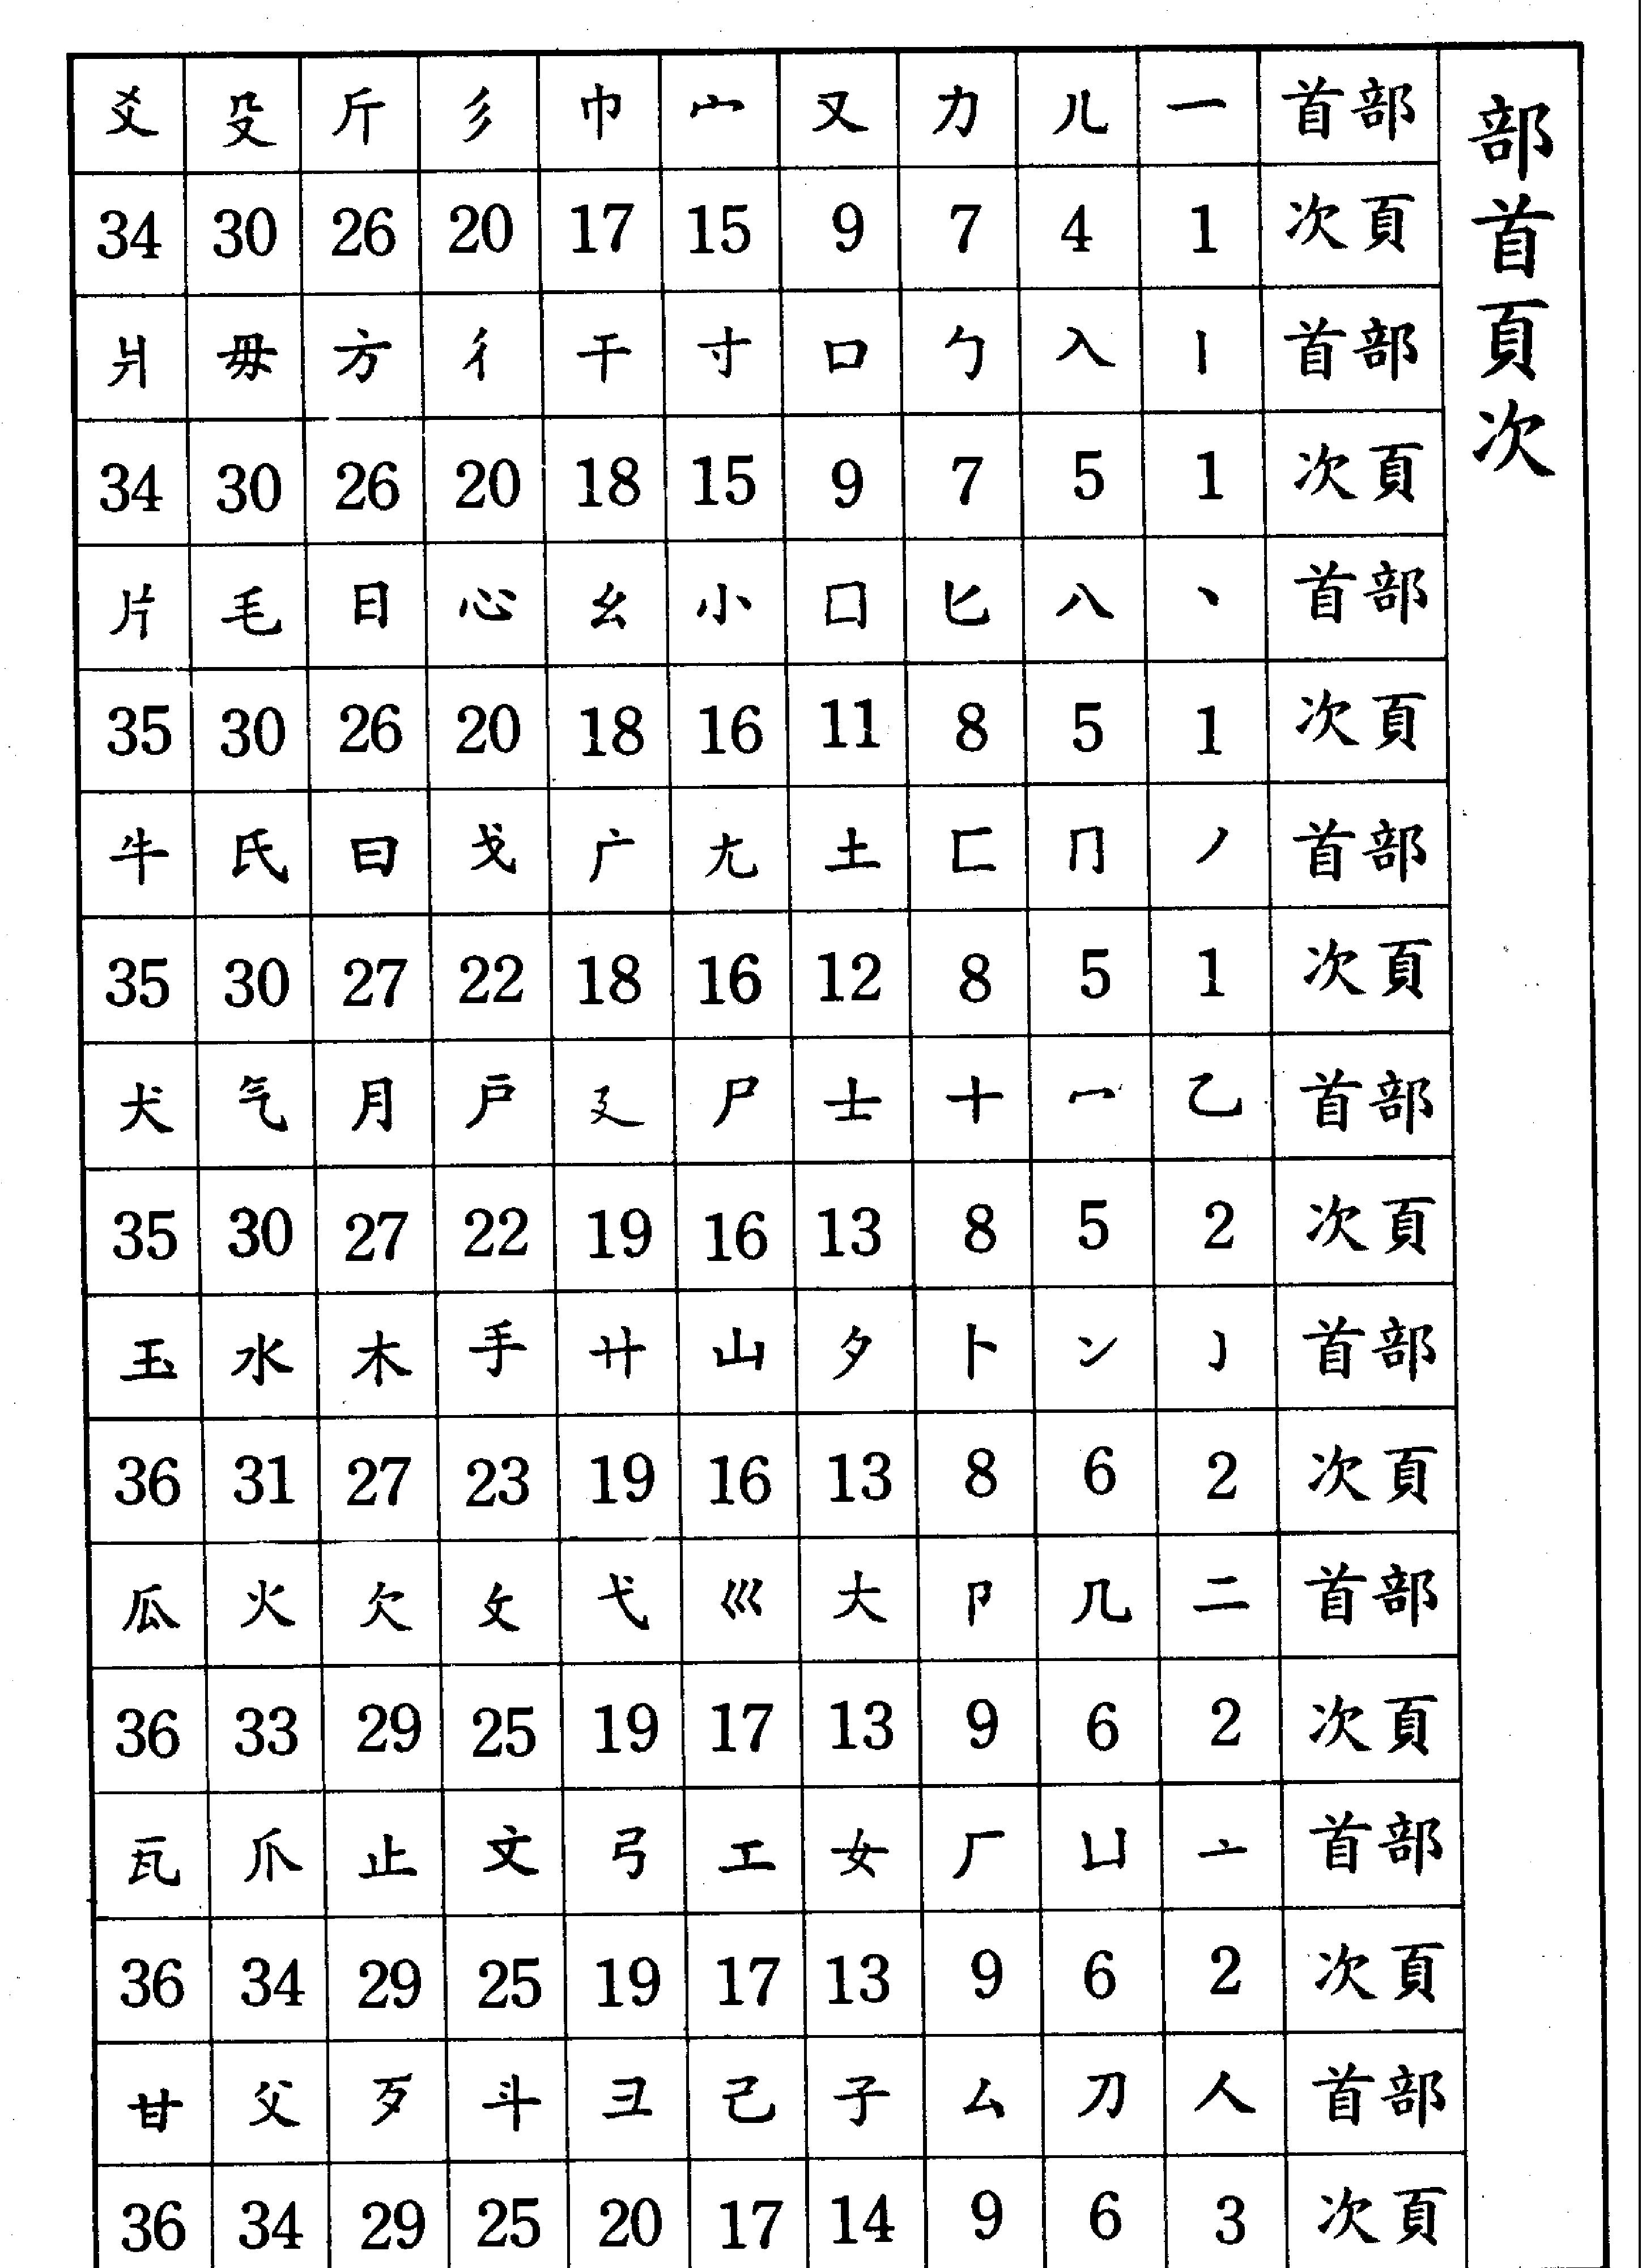 部首頁次
部首 一 儿 力 又 宀 巾 彡 斤 殳 爻
頁次 1 4 7 9 15 17 20 26 30 34
部首 丨 入 勹 口 寸 干 彳 方 毋 爿
頁次 1 5 7 9 15 18 20 26 30 34
部首 丶 八 匕 囗 小 幺 心 日 毛 片
頁次 1 5 8 11 16 18 20 26 30 35
部首 丿 冂 匚 土 尢 广 戈 曰 氏 牛
頁次 1 5 8 12 16 18 22 27 30 35
部首 乙 冖 十 士 尸 廴 戶 月 气 犬
頁次 2 5 8 13 16 19 22 27 30 35
部首 亅 冫 卜 夕 山 廾 手 木 水 玉
頁次 2 6 8 13 16 19 23 27 31 36
部首 二 几 卩 大 巛 弋 攵 欠 火 瓜
頁次 2 6 9 13 17 19 25 29 33 36
部首 亠 凵 厂 女 工 弓 文 止 爪 瓦
頁次 2 6 9 13 17 19 25 29 34 36
部首 人 刀 厶 子 己 彐 斗 歹 父 甘
頁次 3 6 9 14 17 20 25 29 34 36